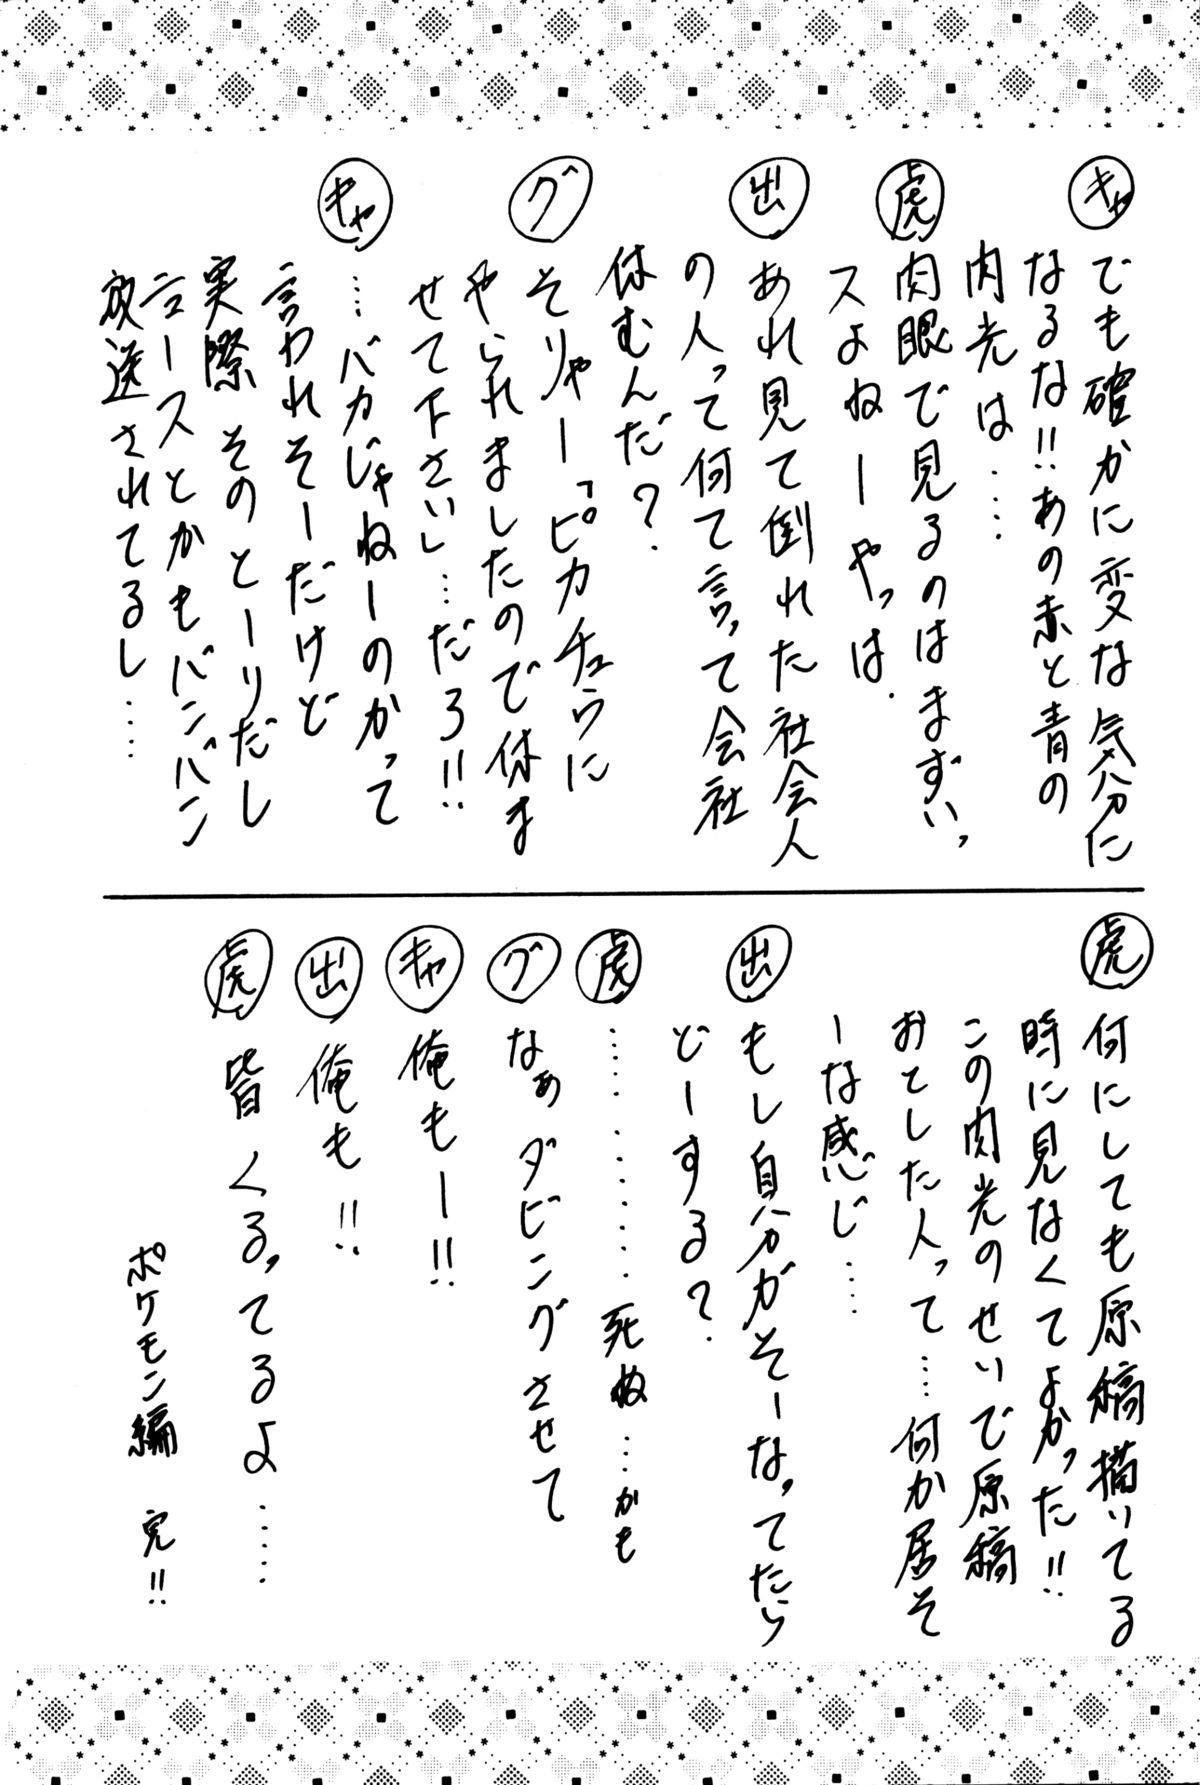 キャ でも確かに変な気分に
なるな!!あの赤と青の
閃光は……
虎 肉眼で見るのはまずいっ
スよねーやっは.
出 あれ見て倒れた社会人
の人って何て言って会社
休むんだ?
グ そりゃー「ピカチュウに
やられましたので休ま
せて下さい」…だろ!!
キャ …バカじゃねーのかって
言われそーだけど
実際 そのとーりだし
ニュースとかもバンバン
放送されてるし……
虎 何にしても原稿描いてる
時に見なくてよかった!!
この閃光のせいで原稿
おとした人って…何か居そ
ーな感じ…
出 もし自分がそーなってたら
どーする?
虎 ………………死ぬ…かも
グ なぁ ダビングさせて
キャ 俺もー!!
出 俺も!!
虎 皆 くるってるよ……
ポケモン編 完!!